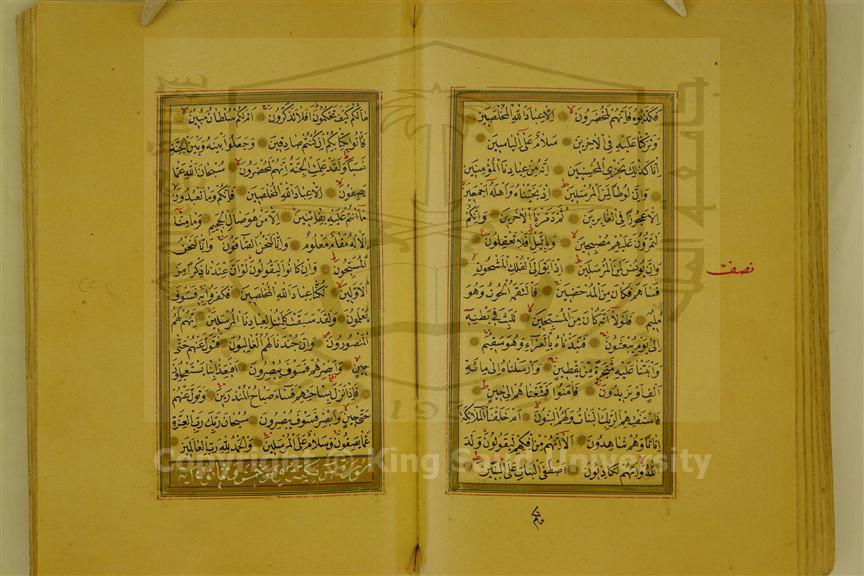 فكذبوه فانهم لمحضرون الا عباد الله المخلصين
وتركنا عليه في الاخرين سلام على الياسين
انا كذلك نجزي المحسنين انه من عبادنا المؤمنين
وان لوطا لمن المرسلين اذ نجيناه واهله اجمعين
الا عجوزا في الغابرين ثم دمرنا الاخرين وانكم
لتمرون عليهم مصبحين وباليل افلا تعقلون
وان يونس لمن المرسلين اذ ابق الى الفلك المشحون
فساهم فكان من المدحضين فالتقمه الحوت وهو
مليم فلولا انه كان من المسبحين للبث في بطنه
الى يوم يبعثون فنبذناه بالعراء وهو سقيم
وانبتنا عليه شجرة من يقطين وارسلناه الى مائة
الف او يزيدون فامنوا فمتعناهم الى حين
فاستفتهم الربك البنات ولهم البنون ام خلقنا الملائكة
اناثا وهم شاهدون الا انهم من افكهم ليقولون ولد
الله وانهم لكاذبون اصطفى البنات على البنين
نصف
مالكم كيف تحكمون افلا تذكرون ام لكم سلطان مبين
فاتوا بكتابكم ان كنتم صادقين وجعلوا بينه وبين الجنة
نسبا ولقد علمت الجنة انهم لمحضرون سبحان الله عما
يصفون الا عباد الله المخلصين فانكم وما تعبدون
ما انتم عليه بفاتنين الا من هو صال الجحيم وما منا
الا له مقام معلوم وانا لنحن الصافون وانا لنحن
المسبحون وان كانوا ليقولون لو ان عندنا ذكرا من
الاولين لكنا عباد الله المخلصين فكفروا به فسوف
يعلمون ولقد سبقت كلمتنا لعبادنا المرسلين انهم لهم
المنصورون وان جندنا لهم الغالبون فتول عنهم حتى
حين وابصرهم فسوف يبصرون افبعذابنا يستعجلون
فاذا نزل بساحتهم فساء صباح المنذرين وتول عنهم
حتى حين وابصر فسوف يبصرون سبحان ربك رب العزة
عما يصفون وسلام على المرسلين والحمد لله رب العالمين
Copyright © King Saud University